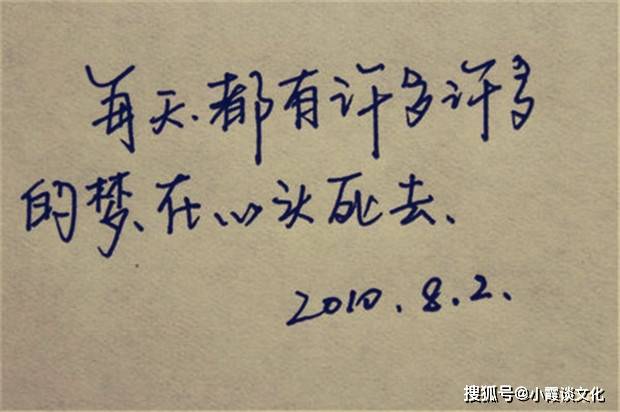 每天、都有许多许多
的梦、在心头死去、
2010.8.2.
搜狐号@小霞谈文化